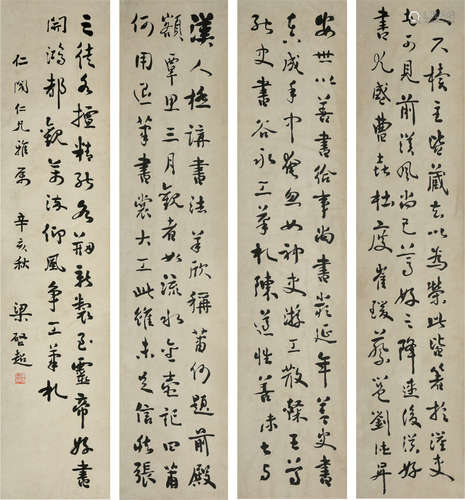 漢人極講書法羊欣稱蕭何題前殿
額覃思三月觀者如流水金壺記曰蕭
何用退筆書裳大工此雖未足信然張
安世以善書給事尚書嚴延年善史書
奏成手中奄忽如神史游工散隸王尊
能史書谷永工筆札陳遵性善隸書與
人尺牘主皆藏去以為榮此皆著於漢史
者可見前漢風尚已篤好之降逮後漢好
書尤盛曹喜杜度崔瑗蔡邕劉德昇
之徒各擅精能各創新裳至靈帝好書
開鴻都觀萬流仰風爭工筆札
仁閣仁兄雅屬 辛亥秋 梁啟超